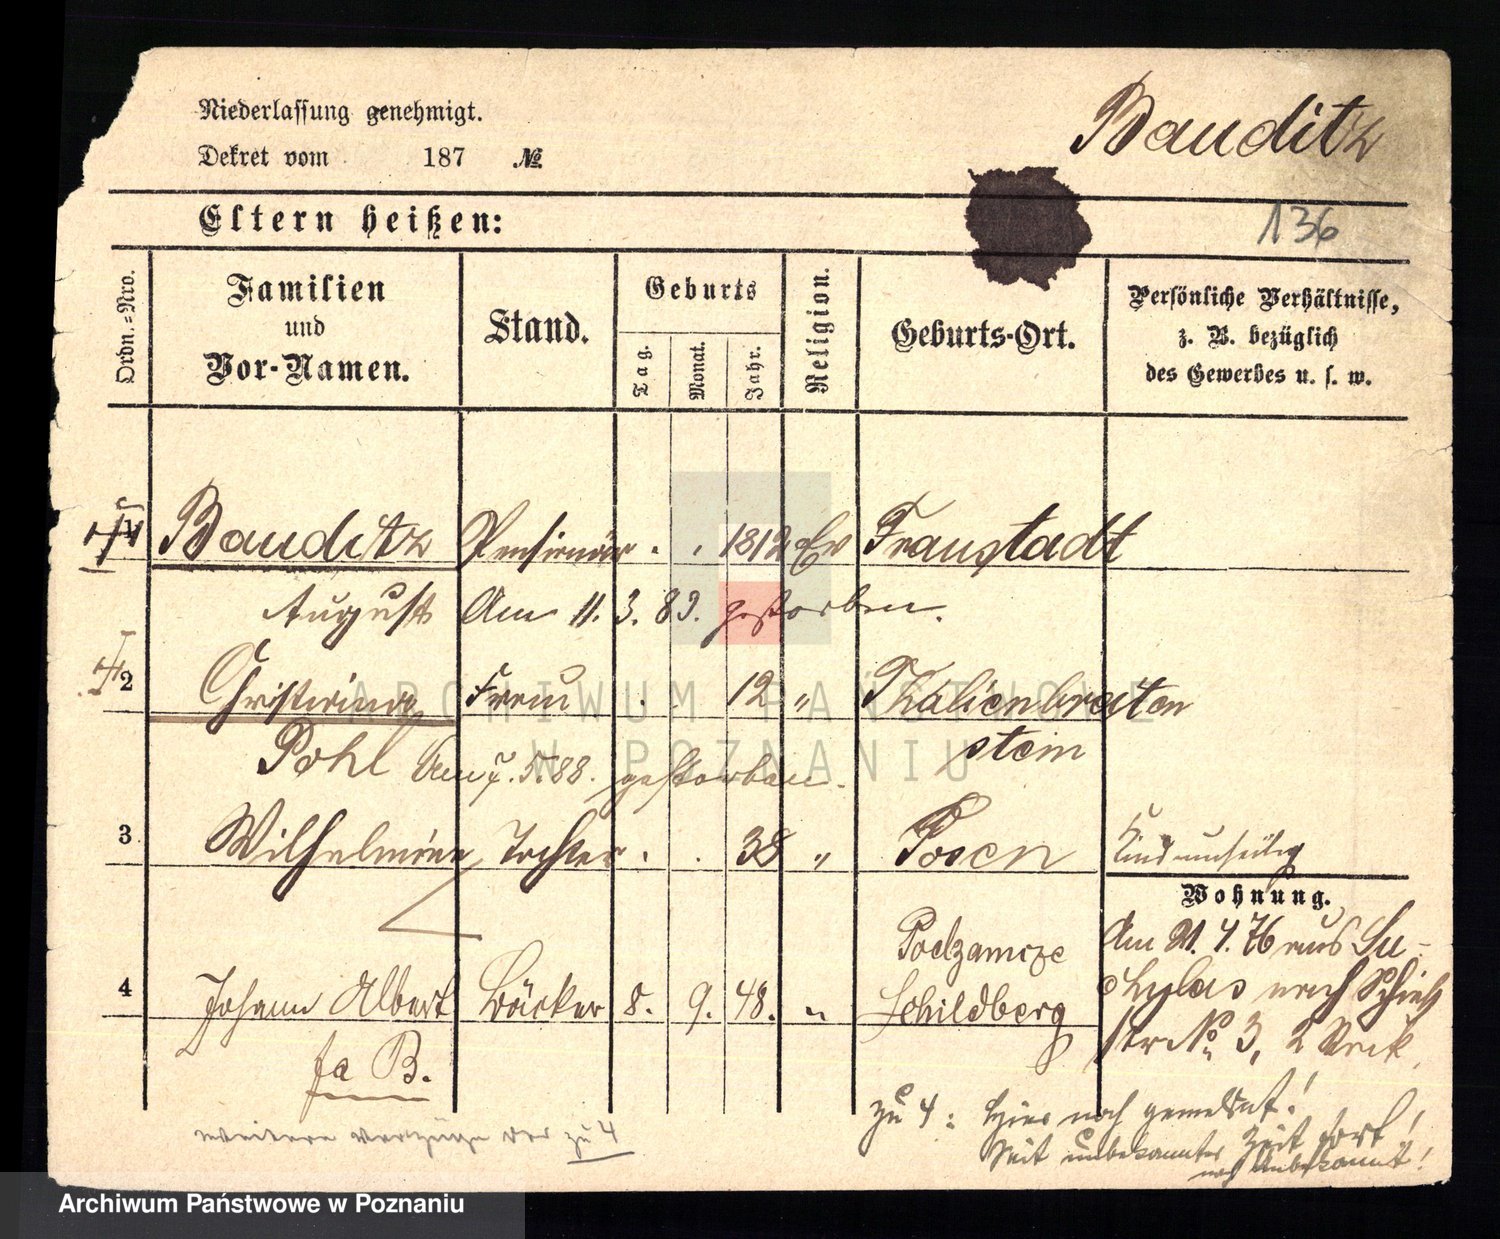 Niederlassung genehmigt.
Dekret vom 187 №
Bauditz
136
Eltern heißen:
Ordn.-Nro.
Familien
und
Vor-Namen.
Stand.
Geburts
Tag.
Monat.
Jahr.
Religion.
Geburts-Ort.
Persönliche Verhältnisse,
z. B. bezüglich
des Gewerbes u. s. w.
1 Bauditz Pensionär . . 1812 Ev Fraustadt
August Am 11.3.89. gestorben.
2 Christina Frau . . 12 " Kalienbreiten
stein
Pohl Am 7.5.88. gestorben.
3 Wilhelmine Tochter . . 38 " Posen
Wohnung.
4 Johann Albert Bäcker 8. 9. 48. " Podzamcze
Schildberg
Am 21.4.76 aus
nach
str No 3, 2
fa B.
zu 4: Hier noch gemeldet!
Seit unbekannter Zeit fort!
noch unbekannt!
weitere der zu 4
ARCHIWUM PAŃSTWOWE
W POZNANIU
Archiwum Państwowe w Poznaniu